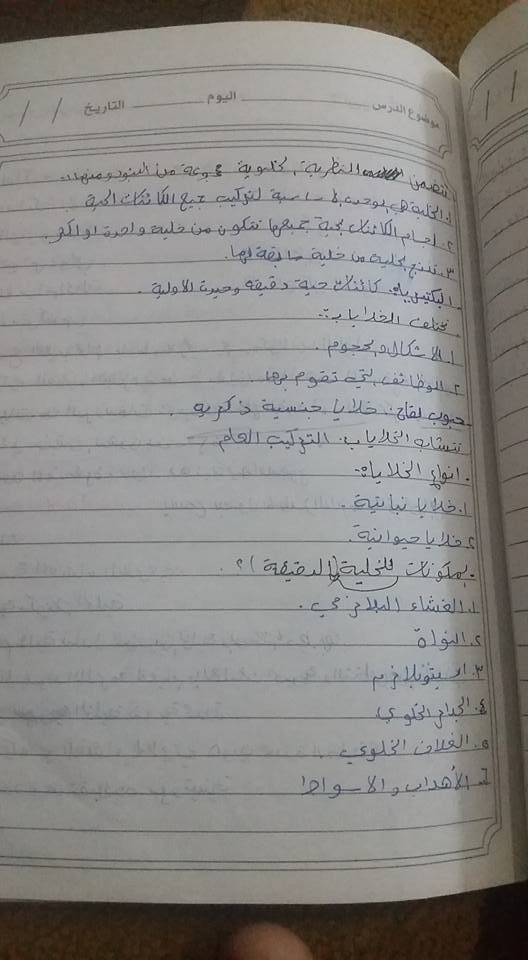 موضوع الدرس ــــــــــ اليوم ــــــــــ التاريخ / /
تتضمن النظرية الخلوية مجموعة من البنود ومنها:-
١. الخلية هي الوحدة الأساسية لتركيب جميع الكائنات الحية
٢. أجسام الكائنات الحية جميعها تتكون من خلية واحدة او اكثر.
٣. تنتج الخلية من خلية سابقة لها.
البكتيريا:- كائنات حية دقيقة وحيدة الاولية.
تختلف الخلايا ب:-
١. الاشكال والحجوم.
٢. الوظائف التي تقوم بها
حبوب لقاح: خلايا جنسية ذكرية.
تتشابه الخلايا ب: التركيب العام
- انواع الخلايا:-
١. خلايا نباتية.
٢. خلايا حيوانية.
- مكونات الخلية (الدقيقة)؟.
١. الغشاء البلازمي.
٢. النواة
٣. السيتوبلازم
٤. الجدار الخلوي
٥. الغلاف الخلوي.
٦. الأهداب والاسواط